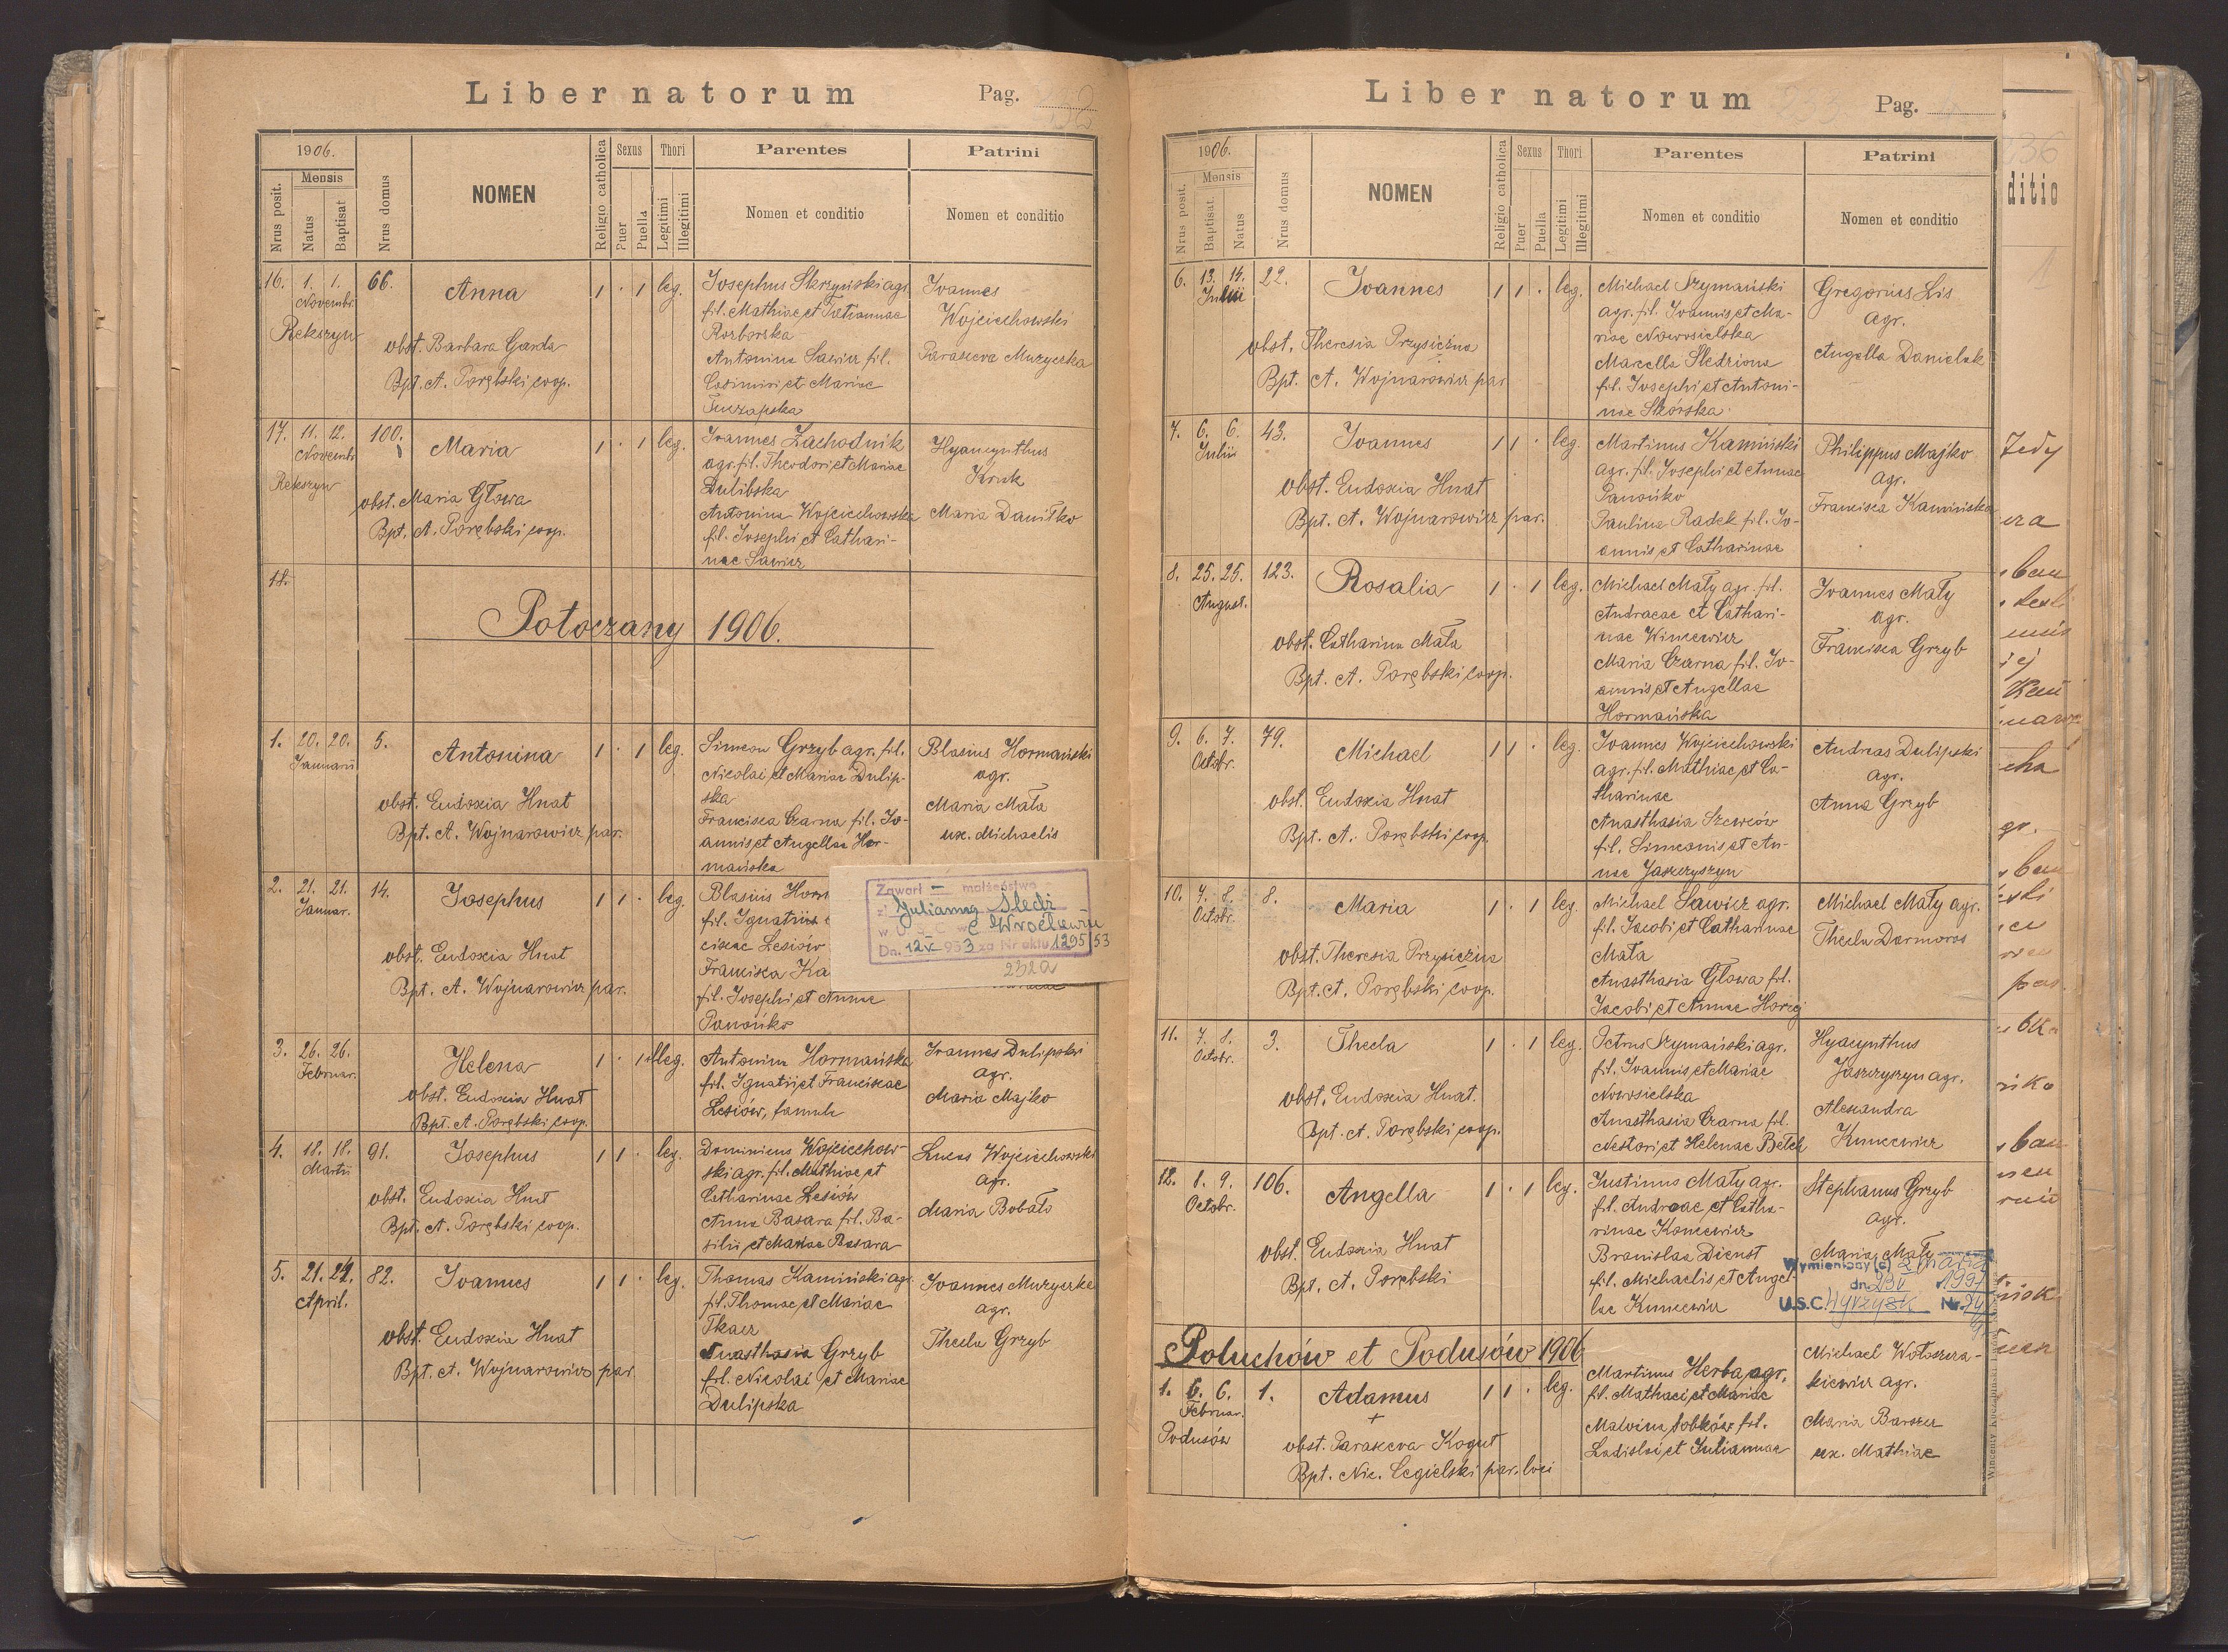 Liber natorum Pag. 132
1906. Mensis Sexus Thori Parentes Patrini
Nrus posit. Natus Baptisat Nrus domus NOMEN Religio catholica Puer Puella Legitimi Illegitimi Nomen et conditio Nomen et conditio
16. 1. 1. Novembr. 66. Anna 1 · 1 leg.
Rekszyn
obst. Barbara Garda
Bpt. A. Porębski coop.
Josephus Skrzyński agr.
fil. Mathiae et Tatiannae
Rozborska
Antonina Sawicz fil.
Casimiri et Mariae
Tuczapska
Ioannes
Wojciechowski
Parasceva Muzyczka
17. 11. 12. Novembr. 100. Maria 1 · 1 leg.
Rekszyn
obst. Maria Głowa
Bpt. A. Porębski coop.
Ioannes Zachodnik
agr. fil. Theodori et Mariae
Dulibska
Antonina Wojciechowska
fil. Josephi et Cathari-
nae Sawicz
Hyacynthus
Kruk
Maria Daniłko
18.
Potoczany 1906.
1. 20. 20. Januarii 5. Antonina 1 · 1 leg.
obst. Eudoxia Hnat
Bpt. A. Wojnarowicz par.
Simeon Grzyb agr. fil.
Nicolai et Mariae Dulip-
ska
Francisca Czarna fil. Jo-
annis et Angellae Hor-
mańska
Blasius Hormański
agr.
Maria Mała
ux. Michaelis
2. 21. 21. Januar. 14. Josephus 1 1 · leg.
obst. Eudoxia Hnat
Bpt. A. Wojnarowicz par.
Blasius Horm
fil. Ignatii
ciscae Lesiów
Francisca Ka
fil. Josephi et Annae
Panońko
Zawarł – małżeństwo
z Julianną Śledź
w U S C we Wrocławiu
Dn. 12 V 953 za Nr aktu 1295/53
232a
3. 26. 26. Februar. Helena 1 · 1 illeg.
obst. Eudoxia Hnat
Bpt. A. Porębski coop.
Antonina Hormańska
fil. Ignatii et Franciscae
Lesiów, famula
Ioannes Dulipski
agr.
Maria Majko
4. 18. 18. Martii 91. Josephus 1 1 · leg.
obst. Eudoxia Hnat
Bpt. A. Porębski coop.
Dominicus Wojciechow-
ski agr. fil. Mathiae et
Catharinae Lesiów
Anna Basara fil. Ba-
silii et Mariae Basara
Lucas Wojciechowski
agr.
Maria Bobato
5. 21. 22. April. 82. Ioannes 1 1 · leg.
obst. Eudoxia Hnat
Bpt. A. Wojnarowicz par.
Thomas Kamiński agr.
fil. Thomae et Mariae
Tkacz
Anasthasia Grzyb
fil. Nicolai et Mariae
Dulipska
Ioannes Muzyczka
agr.
Thecla Grzyb
Liber natorum 233 Pag.
1906. Mensis Sexus Thori Parentes Patrini
Nrus posit. Baptisat. Natus Nrus domus NOMEN Religio catholica Puer Puella Legitimi Illegitimi Nomen et conditio Nomen et conditio
6. 13. 14. Julii 22. Ioannes 1 1 · leg.
obst. Theresia Przysiężna
Bpt. A. Wojnarowicz par
Michael Szymański
agr. fil. Ioannis et Ma-
riae Nowosielska
Marcella Śledziona
fil. Josephi et Antoni-
nae Skórska
Gregorius Lis
agr.
Angella Danielak
7. 6. 6. Julii 43. Ioannes 1 1 · leg.
obst. Eudoxia Hnat
Bpt. A. Wojnarowicz par.
Martinus Kamiński
agr. fil. Josephi et Annae
Panońko
Paulina Radek fil. Jo-
annis et Catharinae
Philippus Majko
agr.
Francisca Kamińska
8. 25. 25. August. 123. Rosalia 1 · 1 leg.
obst. Catharina Mała
Bpt. A. Porębski coop.
Michael Mały agr. fil.
Andreae et Cathari-
nae Wincewicz
Maria Czarna fil. Jo-
annis et Angellae
Hormańska
Ioannes Mały
agr.
Francisca Grzyb
9. 6. 7. Octobr. 79. Michael 1 1 · leg.
obst. Eudoxia Hnat
Bpt. A. Porębski coop.
Ioannes Wojciechowski
agr. fil. Mathiae et Ca-
tharinae
Anasthasia Szewców
fil. Simeonis et An-
nae Jaszczyszyn
Andreas Dulipski
agr.
Anna Grzyb
10. 7. 8. Octobr. 8. Maria 1 · 1 leg.
obst. Theresia Przysiężna
Bpt. A. Porębski coop.
Michael Sawicz agr.
fil. Jacobi et Catharinae
Mała
Anasthasia Głowa fil.
Jacobi et Annae Horzij
Michael Mały agr.
Thecla Darmoros
11. 7. 8. Octobr. 3. Thecla 1 · 1 leg.
obst. Eudoxia Hnat.
Bpt. A. Porębski coop.
Petrus Szymański agr.
fil. Ioannis et Mariae
Nowosielska
Anasthasia Czarna fil.
Nestori et Helenae Betch
Hyacynthus
Jaszczyszyn agr.
Alexandra
Kuncewicz
12. 1. 9. Octobr. 106. Angella 1 · 1 leg.
obst. Eudoxia Hnat
Bpt. A. Porębski
Justinus Mały agr.
fil. Andreae et Catha-
rinae Koncewicz
Bronislaa Dienst
fil. Michaelis et Angel-
lae Kuncewicz
Stephanus Grzyb
agr.
Maria Mały
Wymieniony (a) zmarła
dn. 23 V 1991
U.S.C. Wyrzysk Nr.
Poluchów et Podusów 1906
1. 6. 6. Februar. 1. Adamus 1 1 · leg.
+
Podusów
obst. Parasceva Kogut
Bpt. Nic. Cegielski par. loci
Martinus Herba agr.
fil. Mathaei et Mariae
Malvina Sobków fil.
Ladislai et Juliannae
Michael Wołoszcza-
kiewicz agr.
Maria Barszcz
ux. Mathiae
236
ditio